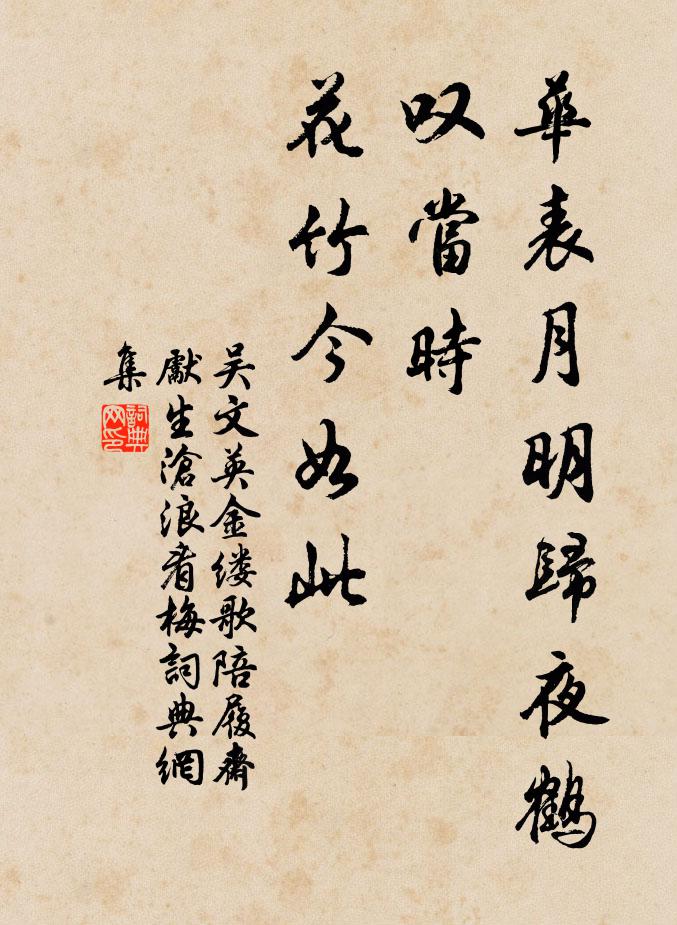 華表月明歸夜鶴
叹當時
花竹今如此
吴文英金缕歌陪履齋
獻生滄浪看梅詞典網
集
詞典网印